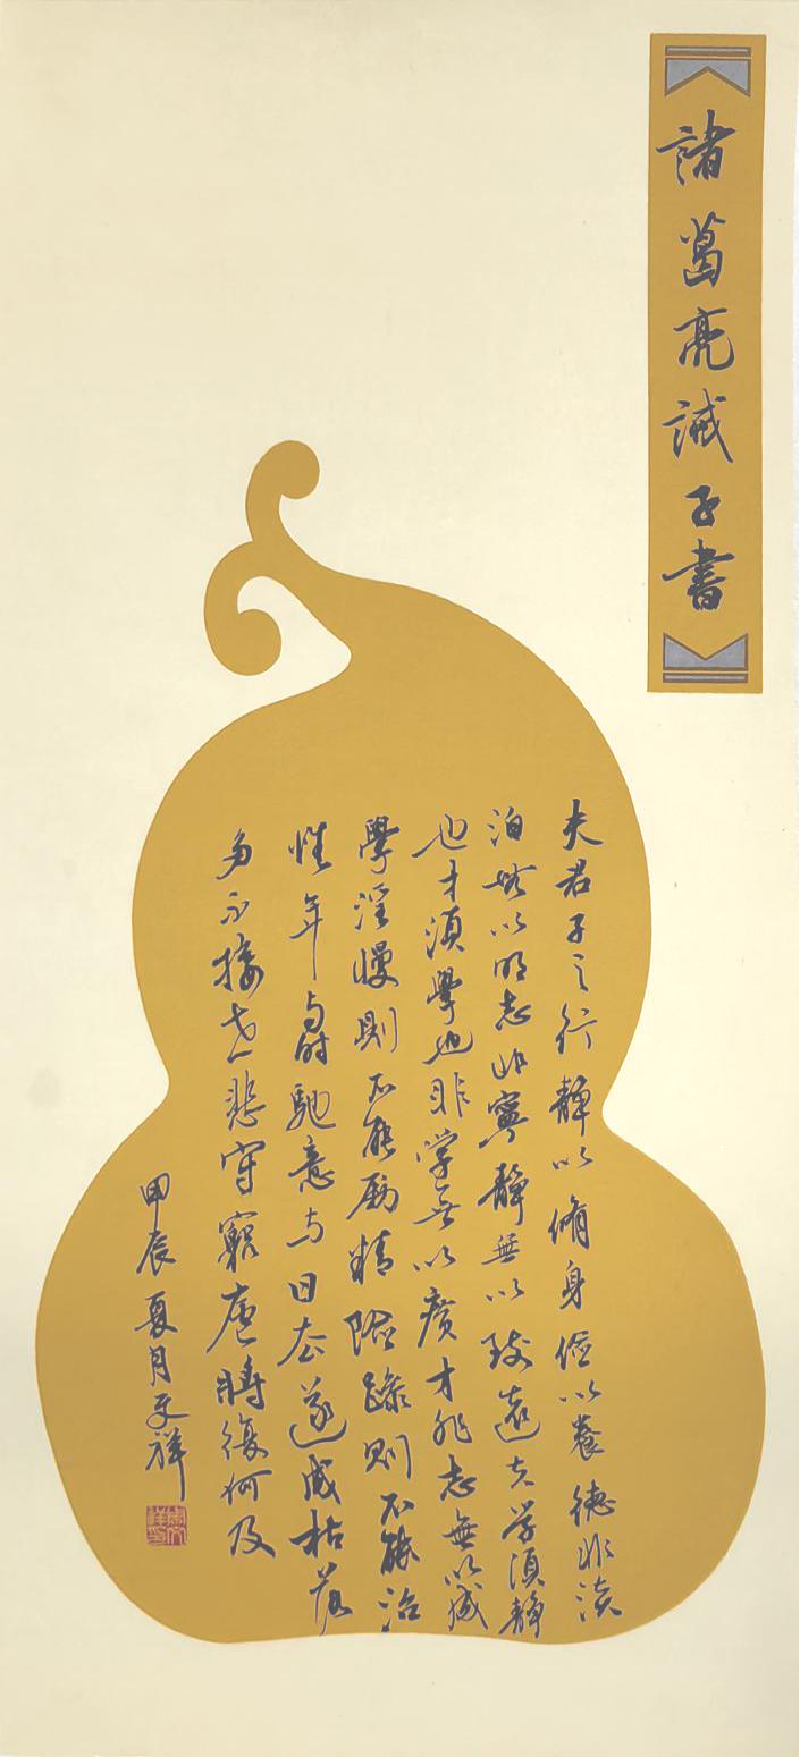 諸葛亮誡子書
夫君子之行靜以脩身儉以養德非淡
泊無以明志非寧靜無以致遠夫學須靜
也才須學也非學無以廣才非志無以成
學淫慢則不能勵精險躁則不能治
性年與時馳意與日去遂成枯落
多不接世悲守窮廬將復何及
甲辰夏月天祥